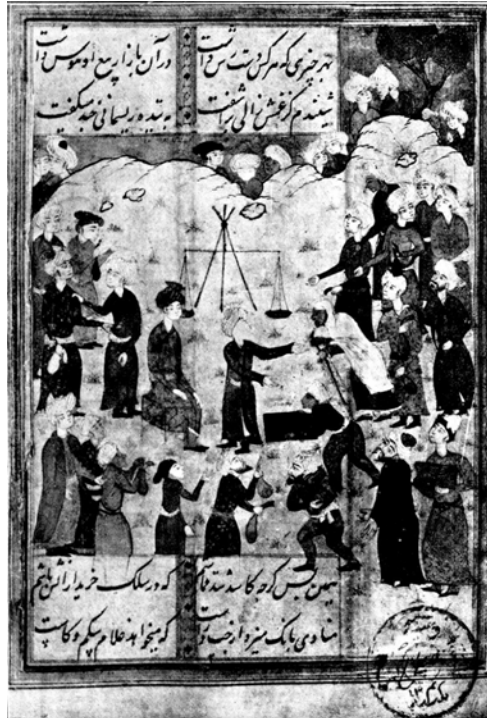 بهر چیزی که هر کس دست رس داشت در آن بازار بیع او هوس داشت
شنیدم کز غمش زالی برآشفت تنیده ریسمانی چند میگفت
همین بس گرچه کاسد شد قماشم که در سلک خریدارانش باشم
منادی بانک میزد از چپ و راست که میخواهد غلامی بیکم و کاست